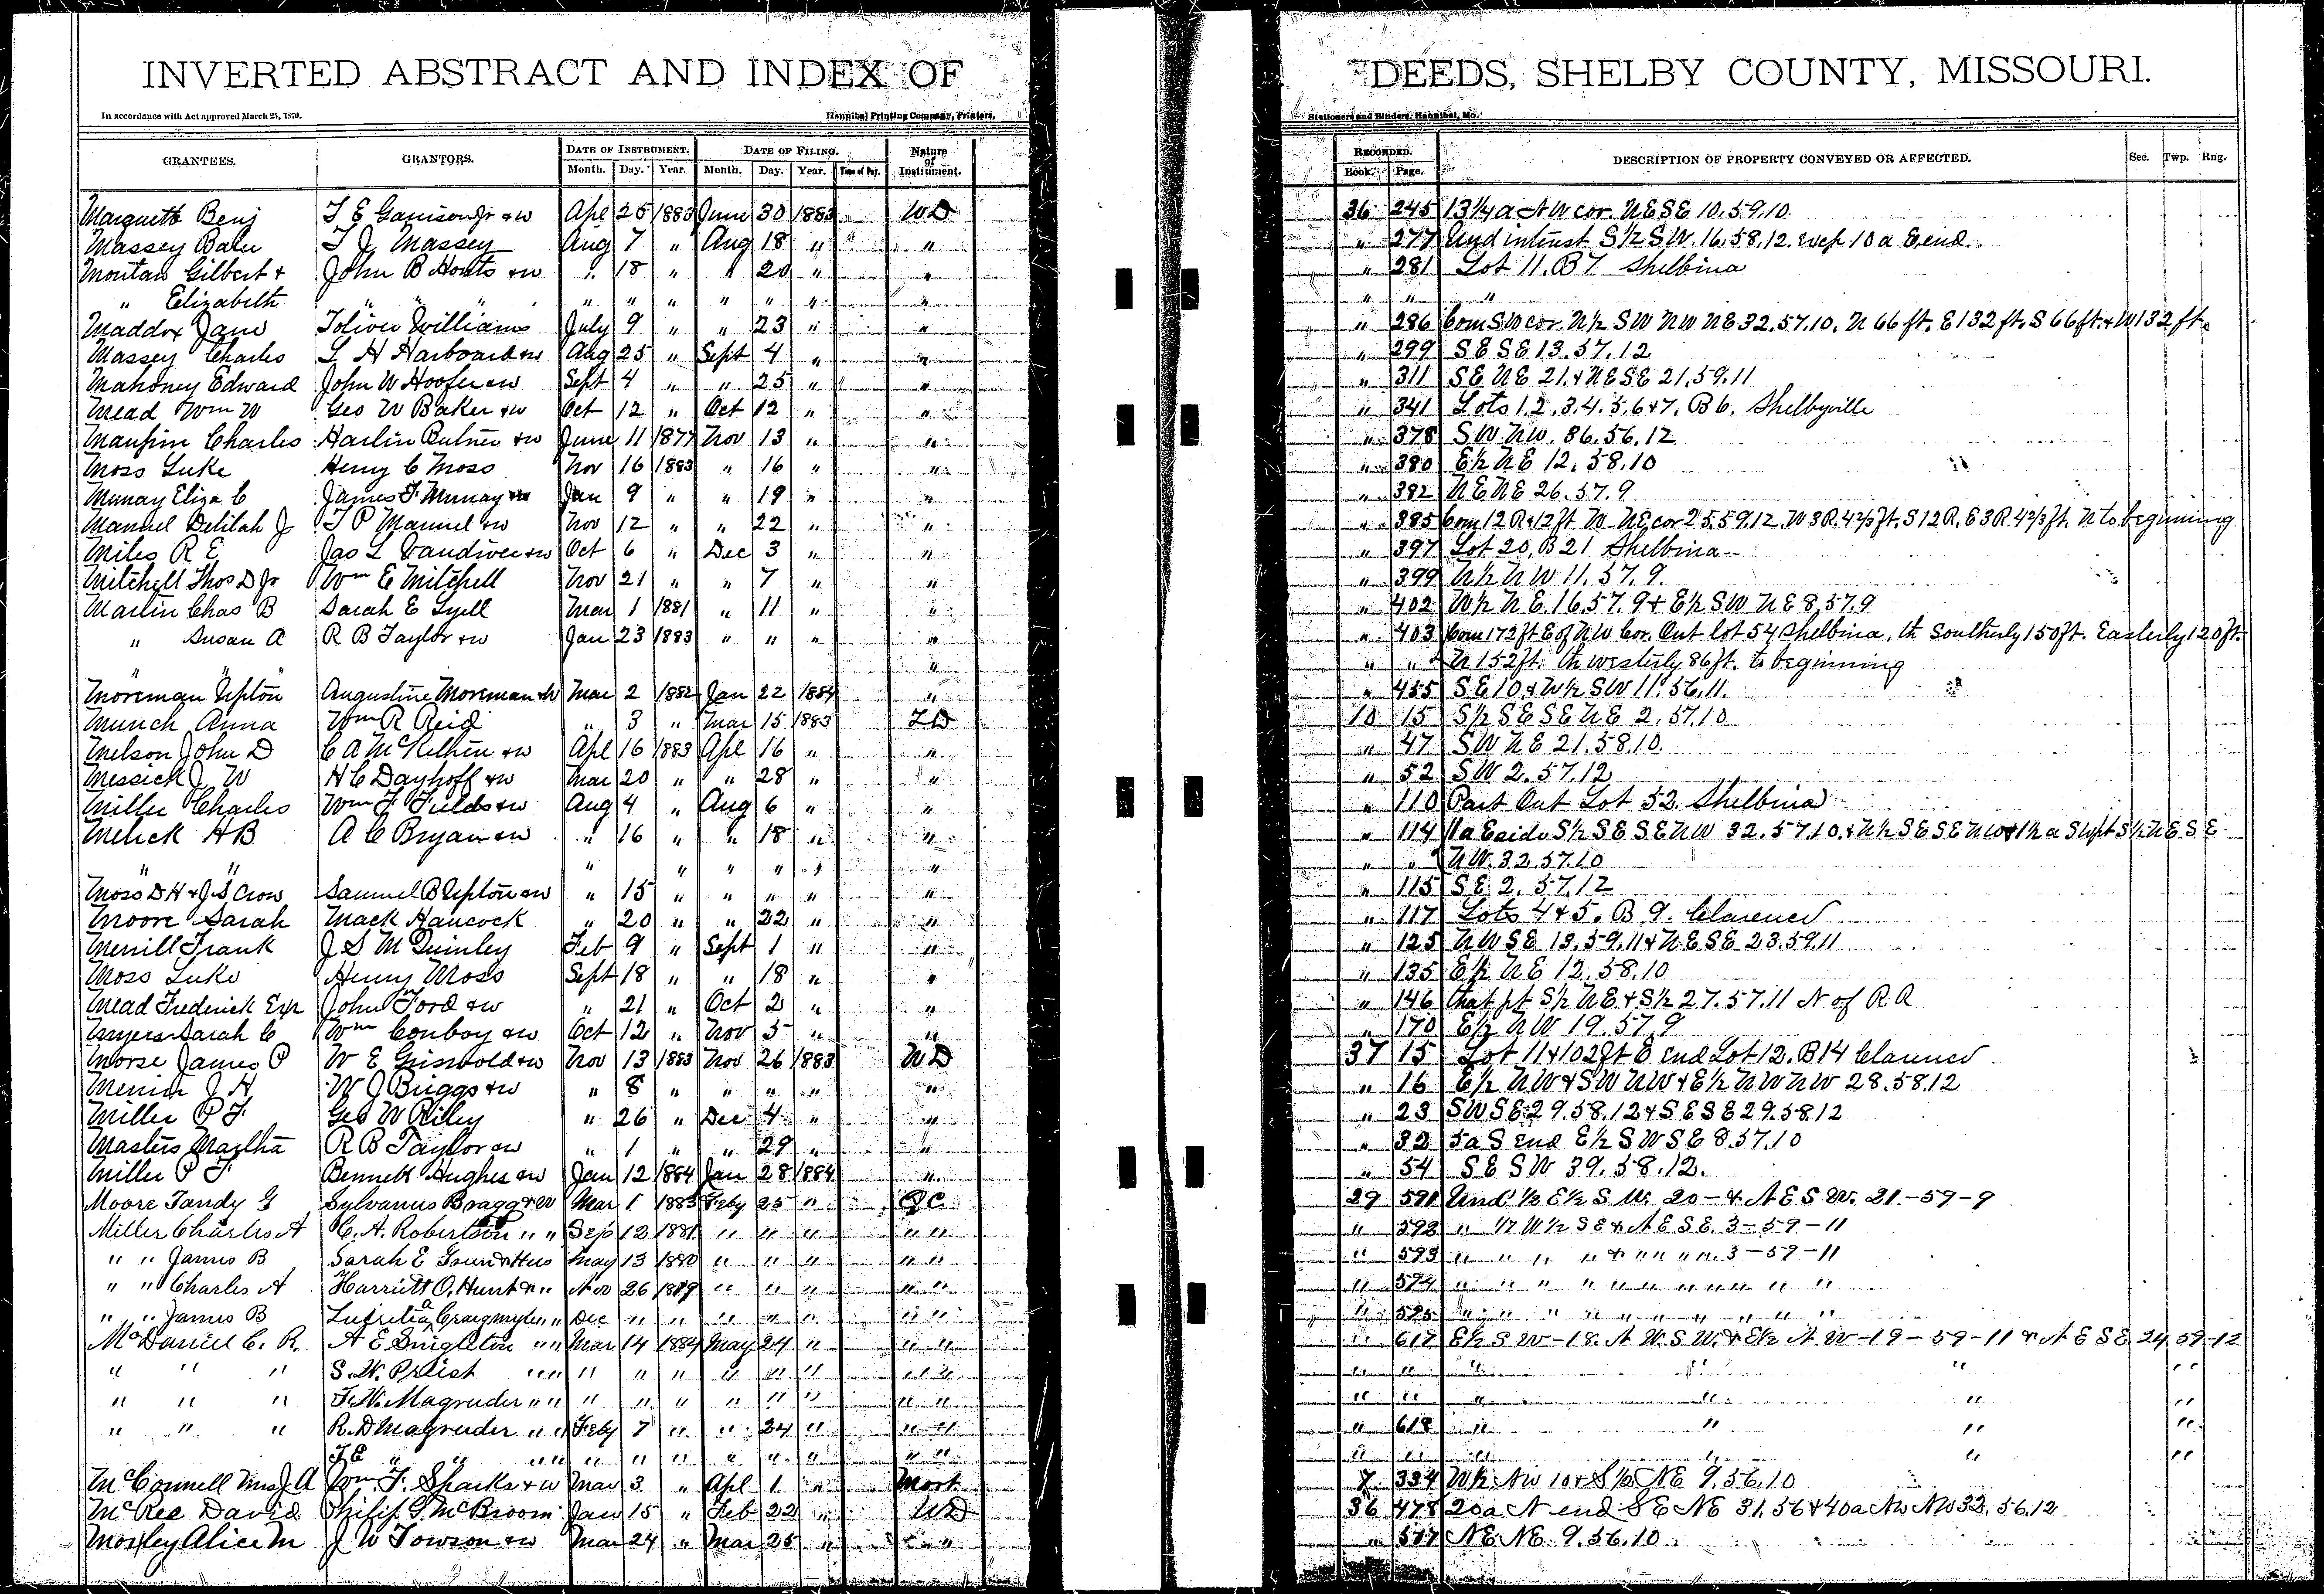 INVERTED ABSTRACT AND INDEX OF DEEDS, SHELBY COUNTY, MISSOURI.
In accordance with Act approved March 25, 1879. Hannibal Printing Company, Printers, Stationers and Binders, Hannibal, Mo.
GRANTEES. GRANTORS. DATE OF INSTRUMENT. DATE OF FILING. Nature of Instrument. RECORDED. DESCRIPTION OF PROPERTY CONVEYED OR AFFECTED. Sec. Twp. Rng.
Month. Day. Year. Month. Day. Year. Time of Day. Book. Page.
Marquett Benj T E Garrison Jr &w Apl 25 1883 June 30 1883 WD 36 245 13¼ a NW cor NESE 10.59.10
Massey Balu T J Massey Aug 7 " Aug 18 " " " 277 Und interest S½ SW. 16.58.12. Excp 10 a E end
Moutan Gilbert & John B Houts &w " 18 " " 20 " " " 281 Lot 11. B7 Shelbina
" Elizabeth " " " " " " " " " " " " "
Maddox Jane Toliver Williams July 9 " " 23 " " " 286 Com SW cor N½ SW NW NE 32.57.10. N 66 ft. E 132 ft. S 66 ft. & W 132 ft.
Massey Charles L H Harboard &w Aug 25 " Sept 4 " " " 299 SE SE 13.57.12
Mahoney Edward John W Hoofer &w Sept 4 " " 25 " " " 311 SE NE 21. & NE SE 21.59.11
Mead Wm W Geo W Baker &w Oct 12 " Oct 12 " " " 341 Lots 1.2.3.4.5.6 & 7. B 6. Shelbyville
Maupin Charles Harlin Butner &w June 11 1877 Nov 13 " " " 378 SW NW. 36.56.12
Moss Luke Henry C Moss Nov 16 1883 " 16 " " " 380 E½ NE 12.58.10
Murray Eliza C James F Murray &w Jan 9 " " 19 " " " 382 NE NE 26.57.9
Manuel Delilah J T P Manuel &w Nov 12 " " 22 " " " 385 Com 12 R & 12 ft W NE cor 25.59.12. W 3 R. 4⅔ ft. S 12 R. E 3 R. 4⅔ ft. N to beginning
Miles R E Jas L Vandiver &w Oct 6 " Dec 3 " " " 397 Lot 20. B 21 Shelbina
Mitchell Thos D Jr Wm E Mitchell Nov 21 " " 7 " " " 399 N½ NW 11.57.9.
Martin Chas B Sarah E Lyell Mar 1 1881 " 11 " " " 402 W½ NE. 16.57.9 & E½ SW NE 8.57.9
" Susan A R B Taylor &w Jan 23 1883 " " " " " 403 Com 172 ft E of NW Cor. Out lot 54 Shelbina, th Southerly 150 ft. Easterly 120 ft.
" " " " " N 152 ft. th westerly 86 ft. to beginning
Moreman Upton Augustine Moreman &W Mar 2 1882 Jan 22 1884 " " 455 SE 10 & W½ SW 11.56.11.
Munch Anna Wm R Reid " 3 " Mar 15 1883 10 15 S½ SE SE NE 2.57.10
Melson John D C A McKethen &w Apl 16 1883 Apl 16 " " " 47 SW NE 21.58.10.
Messick J W H C Dayhoff &w Mar 20 " " 28 " " " 52 SW 2.57.12
Miller Charles Wm F Fields &w Aug 4 " Aug 6 " " " 110 Part Out Lot 52. Shelbina
Melick H B A C Bryan &w " 16 " " 18 " " " 114 11 a E side S½ SE SE NW 32.57.10. & N½ SE SE NW & 1½ a SW pt S½ NE. SE
" " " " " " " " " " " NW. 32.57.10
Moss D H & J S Crow Samuel B Upton &w " 15 " " " " " " 115 SE 2.57.12
Moore Sarah Mack Hancock " 20 " " 22 " " " 117 Lots 4 & 5. B 9. Clarence
Merrill Frank J S M Quinley Feb 9 " Sept 1 " " " 125 NW SE 13.59.11 & NE SE 23.59.11
Moss Luke Henry Moss Sept 18 " " 18 " " " 135 E½ NE 12.58.10
Mead Frederick Exr John Ford &w " 21 " Oct 2 " " " 146 that pt S½ NE & S½ 27.57.11 N of R R
Myers Sarah C Wm Conboy &w Oct 12 " Nov 5 " " " 170 E½ NW 19.57.9
Morse James P W E Griswold &w Nov 13 1883 Nov 26 1883 WD 37 15 Lot 11 & 102 ft E end Lot 12. B14 Clarence
J H W J Briggs &w " 8 " " " " " " 16 E½ NW & SW NW & E½ NW NW 28.58.12
Miller P F Geo W Riley " 26 " Dec 4 " " " 23 SW SE 29.58.12 & SE SE 29.58.12
Masters Martha R B Taylor &w " 1 " " 29 " " " 32 5 a S end E½ SW SE 8.57.10
Miller P F Bennett Hughes &w Jan 12 1884 Jan 28 1884 " " 54 SE SW 39.58.12.
Moore Tandy G Sylvanus Bragg &w Mar 1 1883 Feby 25 " QC 29 591 Und ½ E½ S W. 20 – & N E S W. 21. –59–9
Miller Charles A C. A. Robertson " " Sep 12 1881 " " " " " " 592 " 1/7 W½ SE & N E SE. 3–59–11
" " James B Sarah E & Hus May 13 1880 " " " " " " 593 " " " " & " " " 3–59–11
" " Charles A Harriett O. Hunt & " Nov 26 1879 " " " " " " 594 " " " " " " " " " "
" " James B Lucretia Craigmyle " " Dec " " " " " " " " 595 " " " " " " " " " "
McDaniel C. R. A E Singleton " " Mar 14 1884 May 24 " " " " 617 E½ S W–18. N W. S W. & E½ N W–19–59–11 & N E SE 24 59–12
" " " S. W. Priest " " " " " " " " " " " " " " " "
" " " F. W. Magruder " " " " " " " " " " " " " " "
" " " R. D Magruder " " Feby 7 " " 24 " " " " 618 " " " "
J E " " " " " " " " " " " " " " " "
McConnell Mrs J A Wm F. Sparks &w Mar 3 " Apl 1 " Mort 7 334 W½ NW 10 & S½ NE 9.56.10
McRee David Philip G. McBroom Jan 15 " Feb 22 " WD 36 478 20 a N end SE NE 31.56 & 40 a NW NW 32.56.12
Mosley Alice M J W Towson &w Mar 24 " Mar 25 " " " 517 NE NE 9.56.10